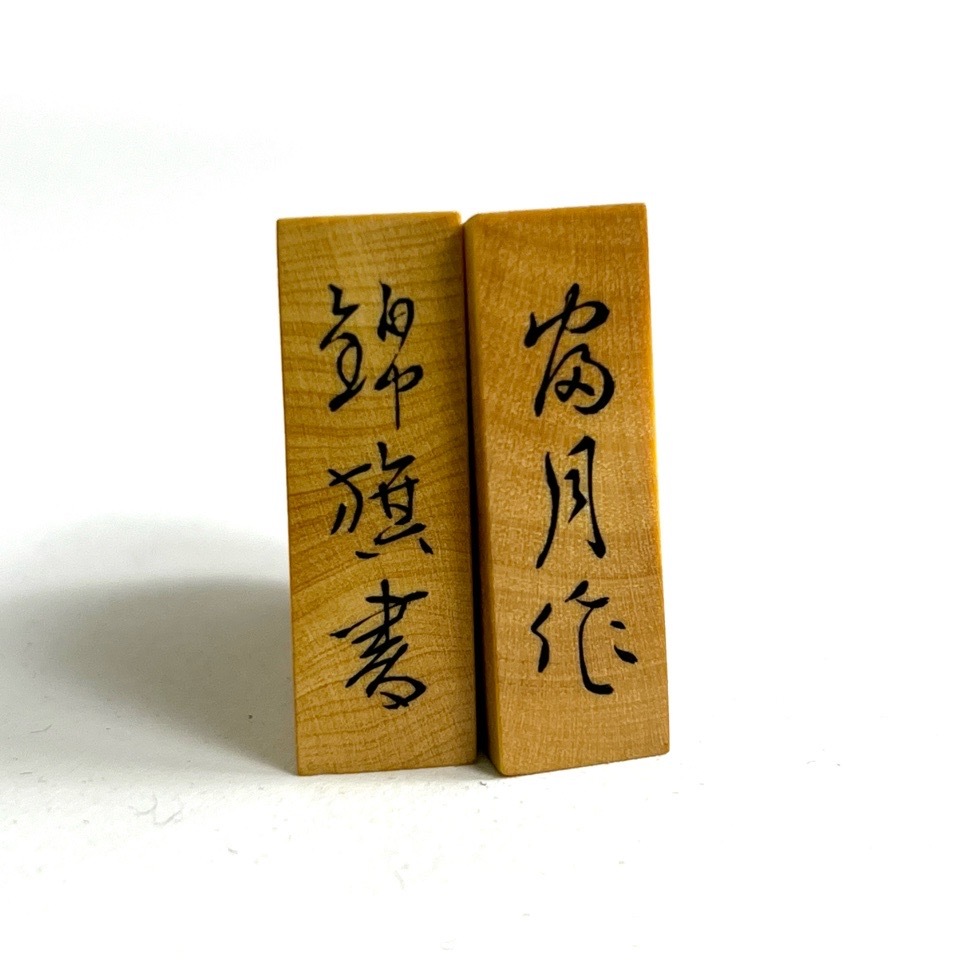 錦旗書
富月作